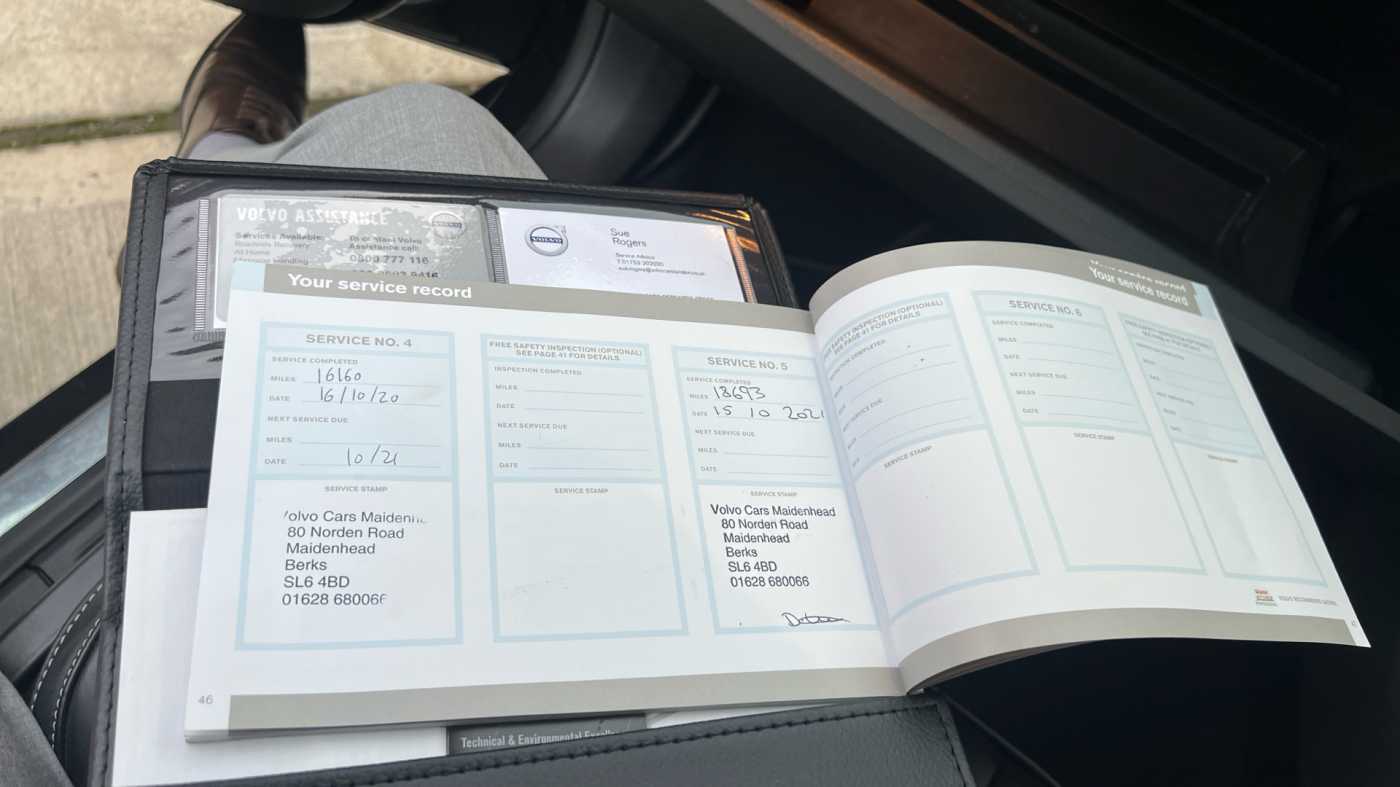 VOLVO ASSISTANCE
Services Available:
Roadside Recovery
At Home
To contact Volvo
Assistance call:
0800 777 116
VOLVO
Sue
Rogers
Service Advisor
Your service record
SERVICE NO. 4
SERVICE COMPLETED
MILES 16160
DATE 16/10/20
NEXT SERVICE DUE
MILES
DATE 10/21
SERVICE STAMP
Volvo Cars Maiden
80 Norden Road
Maidenhead
Berks
SL6 4BD
01628 680066
FREE SAFETY INSPECTION (OPTIONAL)
SEE PAGE 41 FOR DETAILS
INSPECTION COMPLETED
MILES
DATE
NEXT SERVICE DUE
MILES
DATE
SERVICE STAMP
SERVICE NO. 5
SERVICE COMPLETED
MILES 18693
DATE 15 10 2021
NEXT SERVICE DUE
MILES
DATE
SERVICE STAMP
Volvo Cars Maidenhead
80 Norden Road
Maidenhead
Berks
SL6 4BD
01628 680066
46
Your service record
FREE SAFETY INSPECTION (OPTIONAL)
SEE PAGE 41 FOR DETAILS
INSPECTION COMPLETED
MILES
DATE
NEXT SERVICE DUE
MILES
DATE
SERVICE STAMP
SERVICE NO. 6
SERVICE COMPLETED
MILES
DATE
NEXT SERVICE DUE
MILES
DATE
SERVICE STAMP
FREE SAFETY INSPECTION (OPTIONAL)
Technical & Environmental